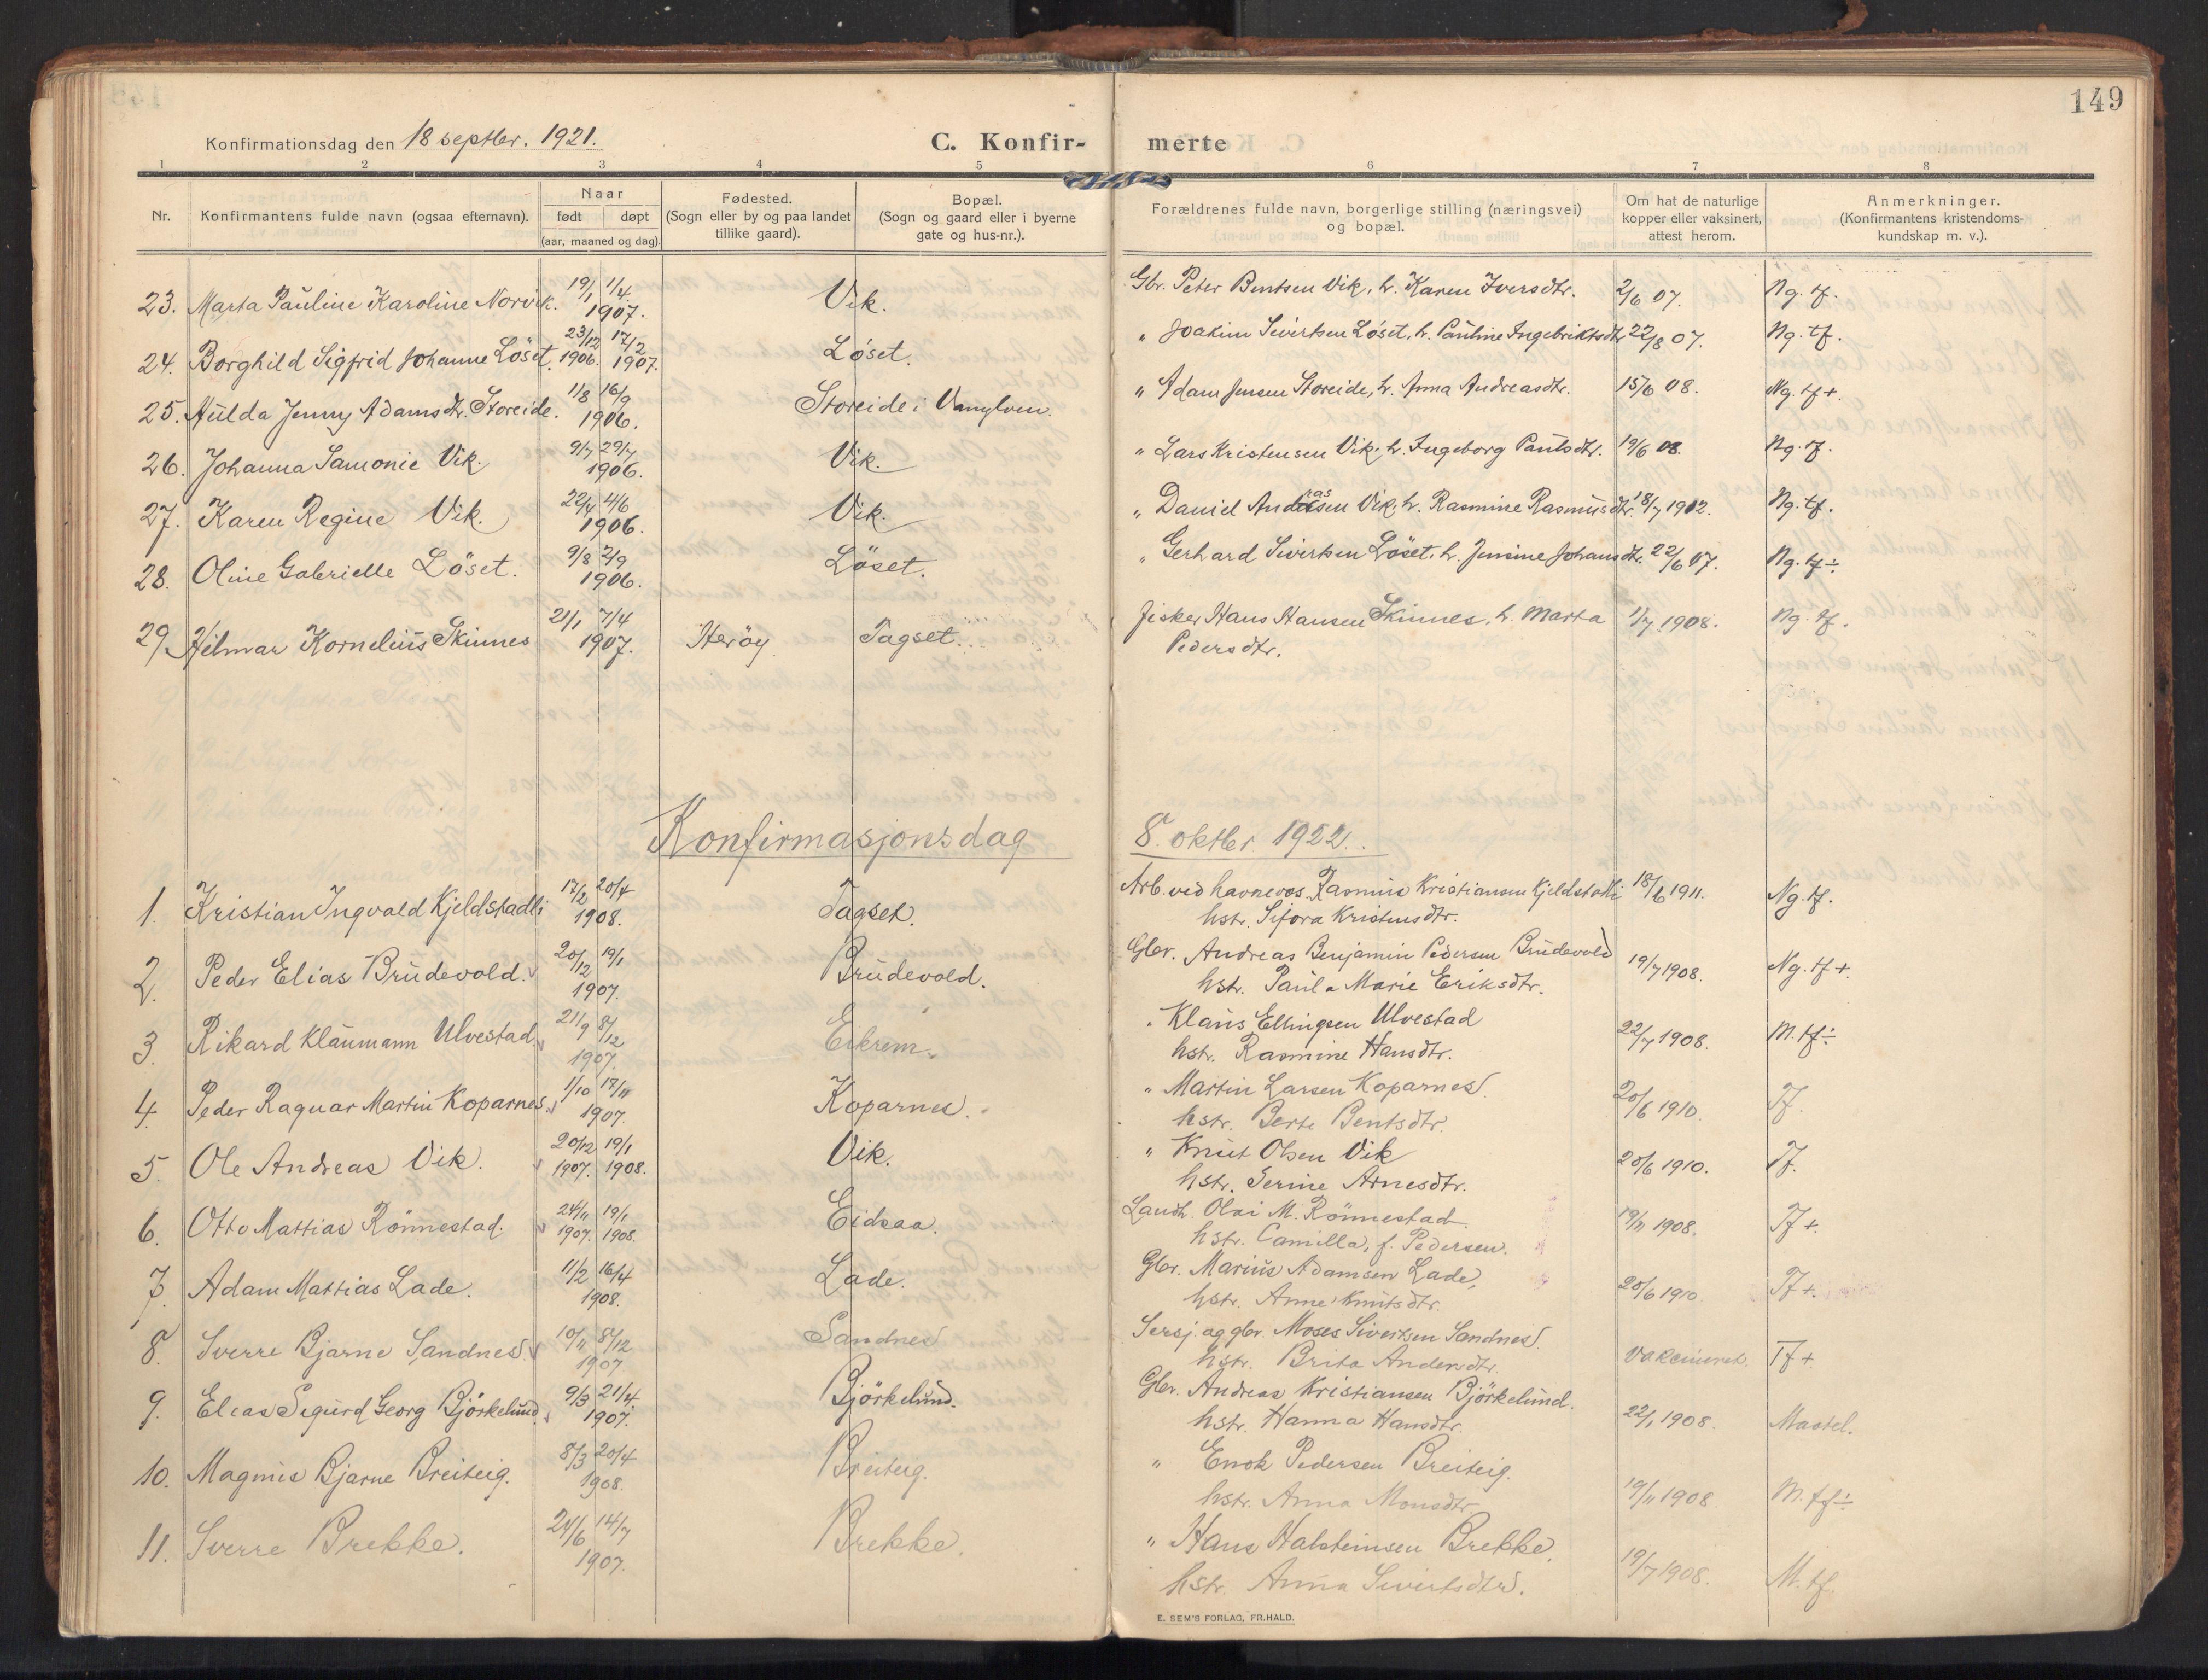 149
Konfirmationsdag den 18 septbr. 1921.
C. Konfir- merte
1 2 3 4 5 6 7 8
Nr.
Konfirmantens fulde navn (ogsaa efternavn).
Naar
født døpt
(aar, maaned og dag).
Fødested.
(Sogn eller by og paa landet
tillike gaard).
Bopæl.
(Sogn og gaard eller i byerne
gate og hus-nr.).
Forældrenes fulde navn, borgerlige stilling (næringsvei)
og bopæl.
Om hat de naturlige
kopper eller vaksinert,
attest herom.
Anmerkninger.
(Konfirmantens kristendoms-
kundskap m. v.).
23. Marta Pauline Karoline Norvik. 19/1 1/4 1907. Vik. Gbr. Peter Bentsen Vik, h. Karen Iversdtr. 2/6 07. Ng. tf.
24. Borghild Sigfrid Johanne Löset. 23/12 1906. 17/2 1907. Löset. " Joakim Sivertsen Löset, h. Pauline Ingebriktsdtr 22/8 07. Ng. tf.
25. Hulda Jenny Adamsdtr. Storeide. 11/8 16/9 1906. Storeide i Vanylven. " Adam Jensen Storeide, h. Anna Andreasdtr. 15/6 08. Ng. tf +.
26. Johanna Samonie Vik. 9/7 29/7 1906. Vik. " Lars Kristensen Vik, h. Ingeborg Paulsdtr. 19/6 08. Ng. tf.
27. Karen Regine Vik. 22/4 4/6 1906. Vik. " Daniel Andreassen Vik, h. Rasmine Rasmusdtr. 18/7 1912. Ng. tf.
28. Oline Gabrielle Löset. 9/8 2/9 1906. Löset. " Gerhard Sivertsen Löset, h. Jensine Johansdtr. 22/6 07. Ng. tf ÷
29. Hilmar Kornelius Skinnes 21/1 7/4 1907. Herøy Tagset. Fisker Hans Hansen Skinnes, h. Marta 1/7 1908. Ng. tf.
Pedersdtr.
Konfirmasjonsdag 8. oktbr. 1922.
1. Kristian Ingvald Kjeldstadli 17/2 20/4 1908. Tagset. Arb. ved havnevæs. Rasmus Kristiansen Kjeldstadli 18/6 1911. Ng. tf.
hstr. Sefora Kristensdtr.
2. Peder Elias Brudevold. 20/12 19/1 1907. Brudevold. Gbr. Andreas Benjamin Pedersen Brudevold 19/7 1908. Ng. tf +.
hstr. Paula Marie Eriksdtr.
3. Rikard Klaumann Ulvestad. 21/9 8/12 1907. Eikrem. " Klaus Ellingsen Ulvestad 22/7 1908. M. tf ÷
hstr. Rasmine Hansdtr.
4. Peder Ragnar Martin Koparnes. 1/10 17/11 1907. Koparnes. " Martin Larsen Koparnes. 20/6 1910. Tf.
hstr. Berte Bentsdtr.
5. Ole Andreas Vik. 20/12 1907. 19/1 1908. Vik. " Knut Olsen Vik 20/6 1910. Tf.
hstr. Serine Arnesdtr.
6. Otto Mattias Rönnestad. 24/11 1907. 19/1 1908. Eidsaa. Landh. Olai M. Rönnestad 19/11 1908. Tf +
hstr. Camilla, f. Pedersen.
7. Adam Mattias Lade. 11/2 16/4 1908. Lade. Gbr. Marius Adamsen Lade, 20/6 1910 Tf +.
hstr. Anne Knutsdtr.
8. Sverre Bjarne Sandnes. 10/11 8/12 1907 Sandnes Sersj. og gbr. Moses Sivertsen Sandnes. Vakcineret. Tf +
hstr. Brita Andersdtr.
9. Elias Sigurd Georg Björkelund. 9/3 21/4. 1907. Björkelund. Gbr. Andreas Kristiansen Björkelund. 22/1 1908. Mastel.
hstr. Hanna Hansdtr.
10. Magnus Bjarne Breiteig. 8/3 20/4 1908. Breiteig. " Enok Pedersen Breiteig. 19/11 1908 M. tf ÷
hstr. Anna Monsdtr
11. Sverre Brekke. 24/6 14/7 1907. Brekke. " Hans Halsteinsen Brekke. 19/7 1908. M. tf.
hstr. Anna Sivertsdtr.
E. SEM'S FORLAG, FR.HALD.